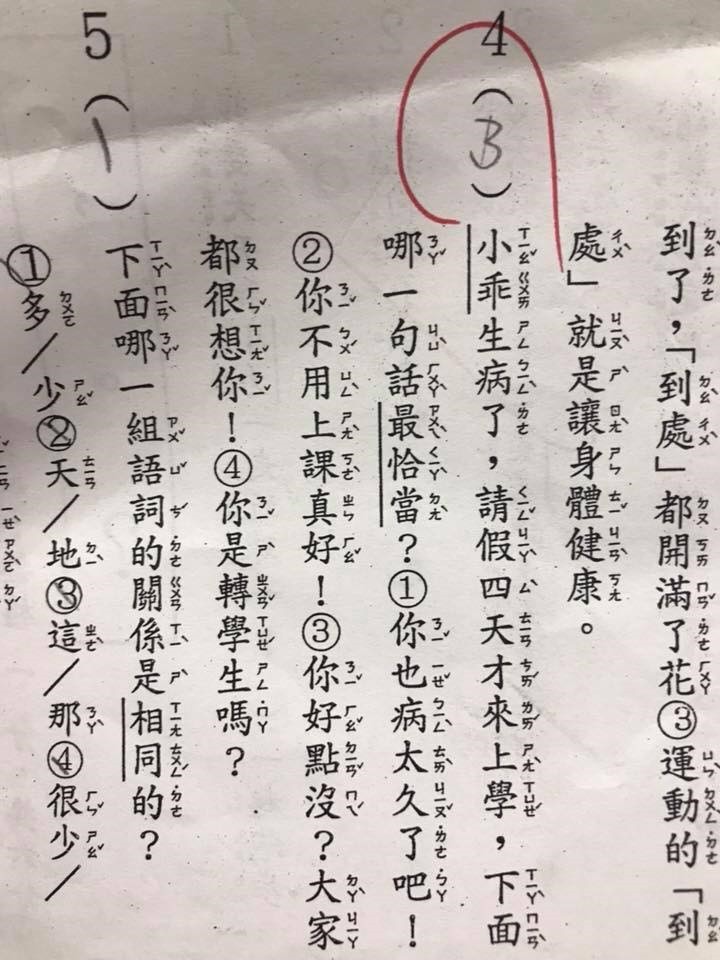 到了,「到處」都開滿了花③運動的「到
處」就是讓身體健康。
4(B)小乖生病了,請假四天才來上學,下面
哪一句話最恰當?①你也病太久了吧!
②你不用上課真好!③你好點沒?大家
都很想你!④你是轉學生嗎?
5(1)下面哪一組語詞的關係是相同的?
①多/少②天/地③這/那④很少/